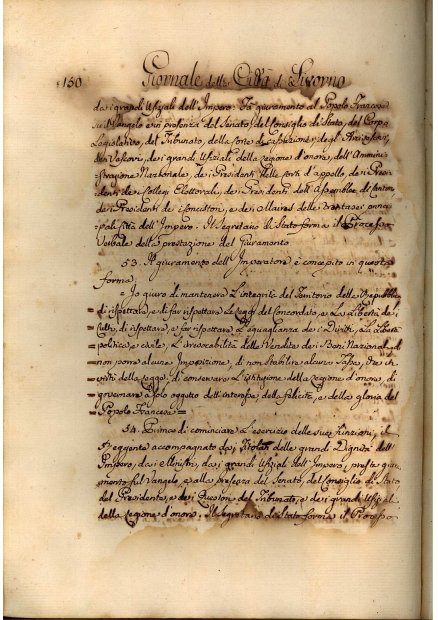 150 Giornale della Città di Livorno
da i grandi Ufiziali dell'Impero: Fa giuramento al Popolo Francese
sul Vangelo e in presenza del Senato, del Consiglio di Stato, del Corpo
Legislativo, del Tribunato, della Corte di Cassazione, degl'Arcivescovi,
dei Vescovi, de i grandi Ufiziali della Legione d'onore, dell'Ammini
=strazione Nazionale, de i Presidenti delle Corti d'appello, de i Presi
denti de i Collegi Elettorali, de i Presidenti dell'Assemblee di Canton,
de i Presidenti de i Concistori, e de i Maires delle trentasei princi
pali Città dell'Impero. Il Segretario di Stato forma il Processo
Verbale della prestazione del Giuramento
53. Il giuramento dell'Imperatore è concepito in questa
forma:
= Io giuro di mantenere l'integrità del Territorio della Repubblica
= di rispettare, e di far rispettare le Leggi del Concordato, e la Libertà dei
Culti, di rispettare, e far rispettare l'Eguaglianza de i Diritti, la Libertà
politica, e civile, l'irrevocabilità delle Vendite de i Beni Nazionali, di
non porre alcuna Imposizione, di non stabilire alcuna Tassa, che in
virtù della Legge, di conservare l'istituzione della Legione d'onore, di
governare a solo oggetto dell'interesse della felicità, e della gloria del
Popolo Francese =
54. Prima di cominciare l'esercizio delle sue Funzioni, il
Reggente accompagnato da i Titolari delle grandi Dignità dell'
Impero, da i Ministri, da i grandi Ufiziali dell'Impero, presta giura
mento sul Vangelo, e alla presenza del Senato, del Consiglio di Stato
del Presidente, e de i Questori del Tribunato, e de i grandi Ufiziali
della Legione d'onore. Il Segretario di Stato forma il Processo